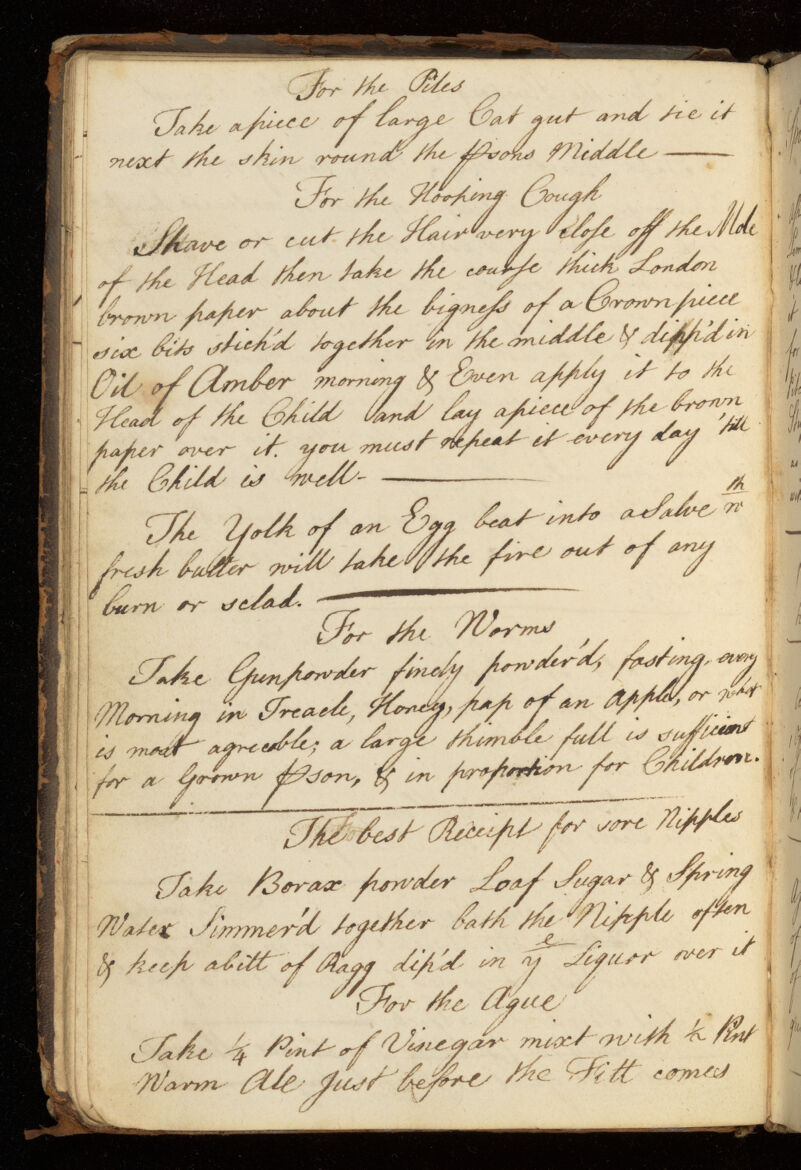 For the Piles
Take apiece of large Cat gut and tie it
next the skin round the ꝑsons Middle —
For the Hooping Cough
Shave or cut the Hair very close off the Mole
of the Head then take the course thick London
brown paper about the bigness of a Crown piece
six bits stich'd together in the middle & dipp'd in
Oil of Amber morning & Even apply it to the
Head of the Child and lay apiece of the brown
paper over it. you must repeat it every day 'till
the Child is well- —
The Yolk of an Egg beat into a Salve wth
fresh butter will take the fire out of any
burn or sclad. —
For the Worms
Take Gunpowder finely powder'd, fasting, every
Morning in Treacle, Honey, pap of an apple, or
is most agreeable; a large thimble full is sufficient
for a Grown ꝑson, & in proportion for Children.
The best Receipt for sore Nipples
Take Borax powder Loaf Sugar & Spring
Water Simmer'd together bath the Nipple often
& keep abitt of Ragg dip'd in ye Liquor over it
For the Ague
Take ¼ Pint of Vinegar mixt with ½ Pint
Warm Ale Just before the Fitt comes